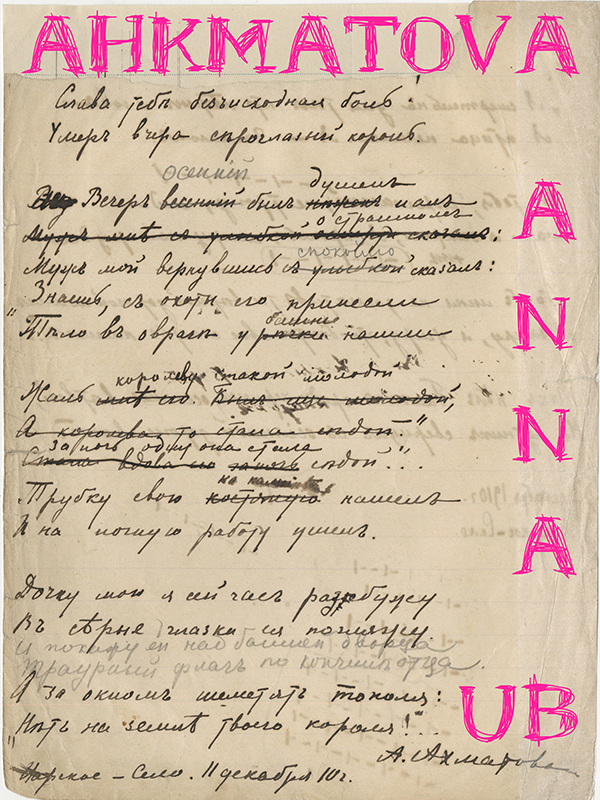 AHKMATOVA
ANNA
UB
Слава тебѣ безъисходная боль!
Умеръ вчера сѣроглазый король.
осенній душенъ
Вечеръ весенній былъ и алъ
о страшномъ
Мужъ мнѣ съ улыбкой сказалъ:
спокойно
Мужъ мой вернувшись съ улыбкой сказалъ:
Знаешь, съ охоты его принесли
башни
"Тѣло въ оврагѣ у рѣчки нашли
королеву такой молодой
Жаль мнѣ его. Былъ молодой,
А королева то стала сѣдой."
За ночь одну она стала
Стала вдова его за ночь сѣдой."...
на каминѣ
Трубку свою нашелъ
И на ночную работу ушелъ.
Дочку мою я сейчасъ разбужу
Въ сѣрые глазки ея погляжу.
И покажу ей над башней дворца
Траурный флагъ по кончинѣ отца.
А за окномъ шелестятъ тополя:
"Нѣтъ на землѣ твоего короля!"
А. Ахматова
Царское-Село. 11 декабря 10г.